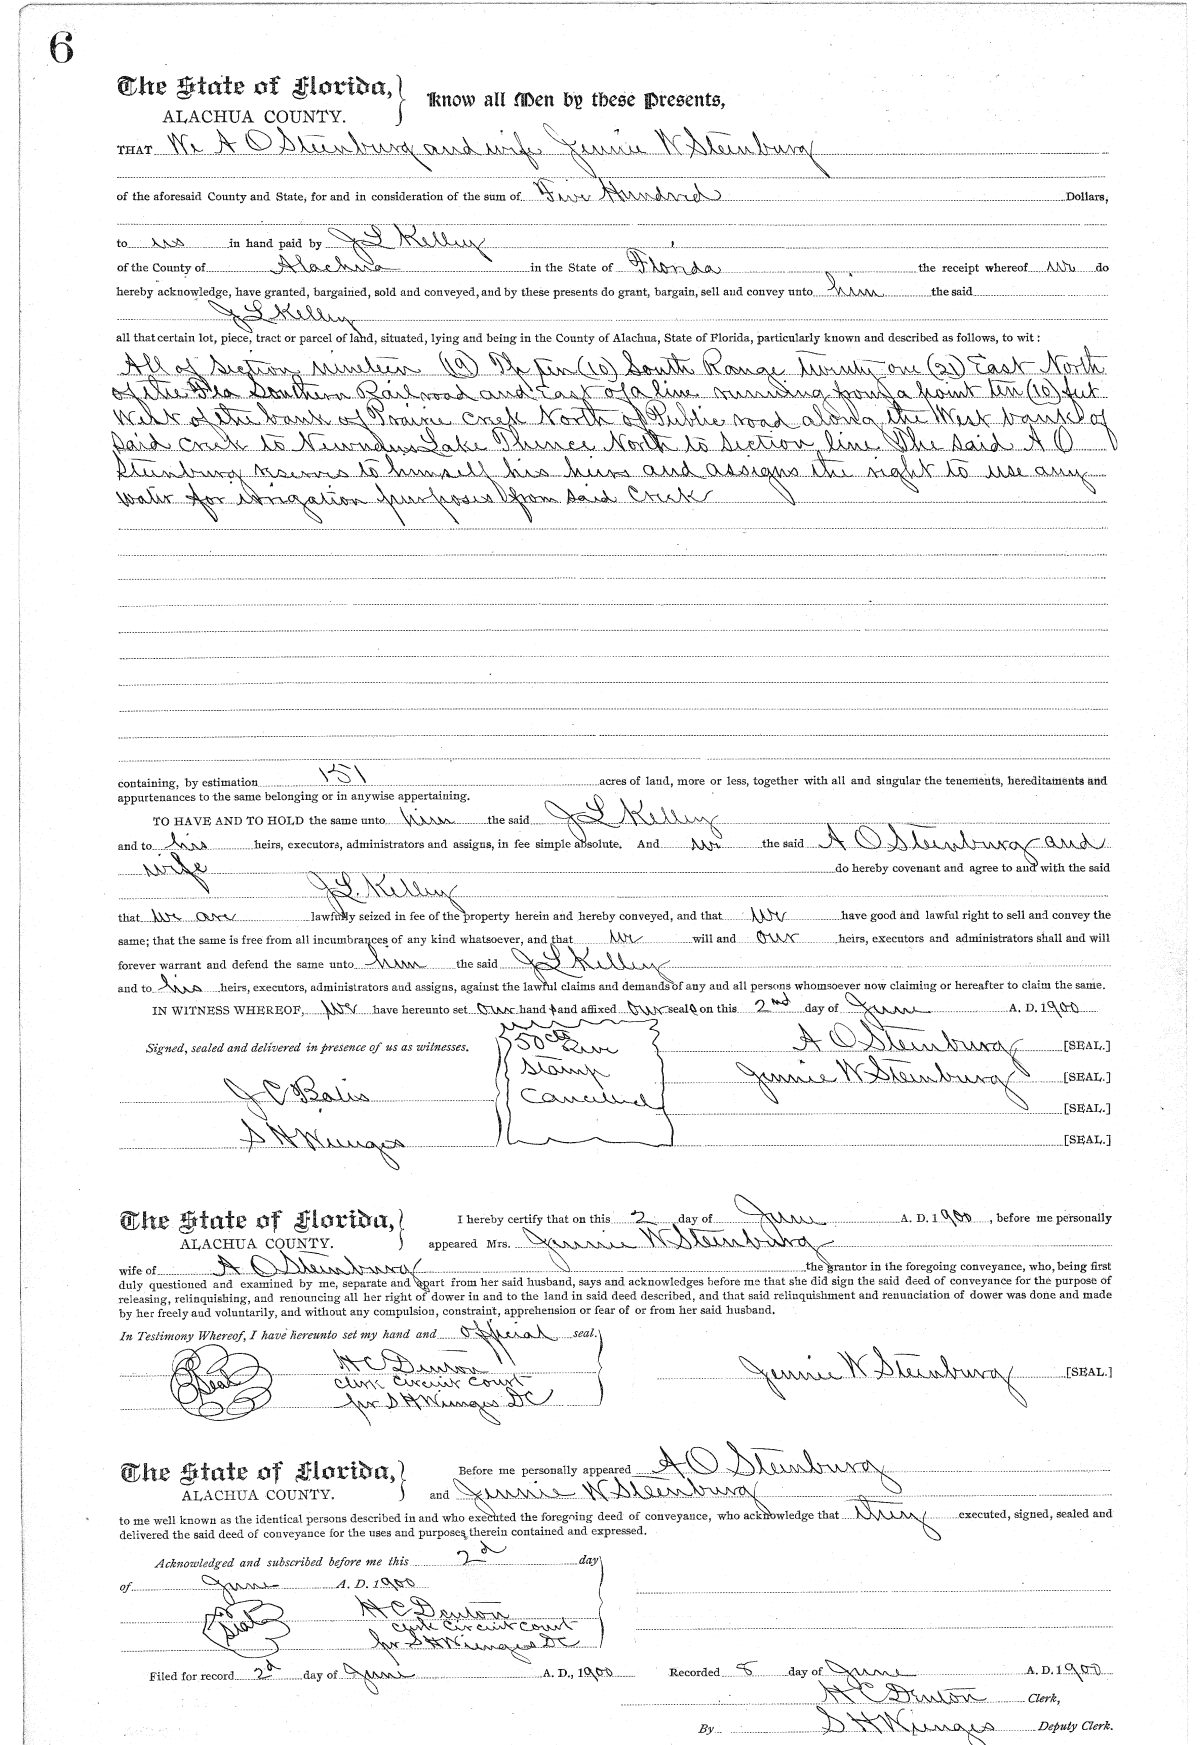 6
The State of Florida,
ALACHUA COUNTY.
Know all Men by these Presents,
THAT We A O Steenburg and wife Jennie W Steenburg
of the aforesaid County and State, for and in consideration of the sum of Five Hundred Dollars,
to us in hand paid by J L Kelley
of the County of Alachua in the State of Florida the receipt whereof we do
hereby acknowledge, have granted, bargained, sold and conveyed, and by these presents do grant, bargain, sell and convey unto him the said
J L Kelley
all that certain lot, piece, tract or parcel of land, situated, lying and being in the County of Alachua, State of Florida, particularly known and described as follows, to wit:
All of Section nineteen (19) Tp ten (10) South Range twenty one (21) East North
of the Fla Southern Railroad and East of a line running from a point ten (10) feet
West of the bank of Prairie Creek North of Public road along the West bank of
said creek to Newnans Lake Thence North to Section line The said A O
Steenburg reserves to himself his heirs and assigns the right to use any
water for irrigation purposes from said Creek
containing, by estimation 151 acres of land, more or less, together with all and singular the tenements, hereditaments and
appurtenances to the same belonging or in anywise appertaining.
TO HAVE AND TO HOLD the same unto him the said J L Kelley
and to his heirs, executors, administrators and assigns, in fee simple absolute. And we the said A O Steenburg and
wife do hereby covenant and agree to and with the said
J L. Kelley
that we are lawfully seized in fee of the property herein and hereby conveyed, and that we have good and lawful right to sell and convey the
same; that the same is free from all incumbrances of any kind whatsoever, and that we will and our heirs, executors and administrators shall and will
forever warrant and defend the same unto him the said J L Kelley
and to his heirs, executors, administrators and assigns, against the lawful claims and demands of any and all persons whomsoever now claiming or hereafter to claim the same.
IN WITNESS WHEREOF, we have hereunto set our hand s and affixed our seals on this 2nd day of June A. D. 1900
Signed, sealed and delivered in presence of us as witnesses.
50cts Rev
Stamp
Canceled
A O Steenburg [SEAL.]
Jennie W Steenburg [SEAL.]
J C [SEAL.]
S H Wienges [SEAL.]
The State of Florida,
ALACHUA COUNTY.
I hereby certify that on this 2 day of June A. D. 1900, before me personally
appeared Mrs. Jennie W Steenburg
wife of A O Steenburg the grantor in the foregoing conveyance, who, being first
duly questioned and examined by me, separate and apart from her said husband, says and acknowledges before me that she did sign the said deed of conveyance for the purpose of
releasing, relinquishing, and renouncing all her right of dower in and to the land in said deed described, and that said relinquishment and renunciation of dower was done and made
by her freely and voluntarily, and without any compulsion, constraint, apprehension or fear of or from her said husband.
In Testimony Whereof, I have hereunto set my hand and official seal.
Seal
H C Denton
Clerk Circuit Court
per S H Wienges DC
Jennie W Steenburg [SEAL.]
The State of Florida,
ALACHUA COUNTY.
Before me personally appeared A O Steenburg
and Jennie W Steenburg
to me well known as the identical persons described in and who executed the foregoing deed of conveyance, who acknowledge that they executed, signed, sealed and
delivered the said deed of conveyance for the uses and purposes therein contained and expressed.
Acknowledged and subscribed before me this 2d day
of June A. D. 1900
Seal
H C Denton
Clerk Circuit Court
per S H Wienges DC
Filed for record 2d day of June A. D., 1900
Recorded 8 day of June A. D. 1900
H C Denton Clerk,
By S H Wienges Deputy Clerk.